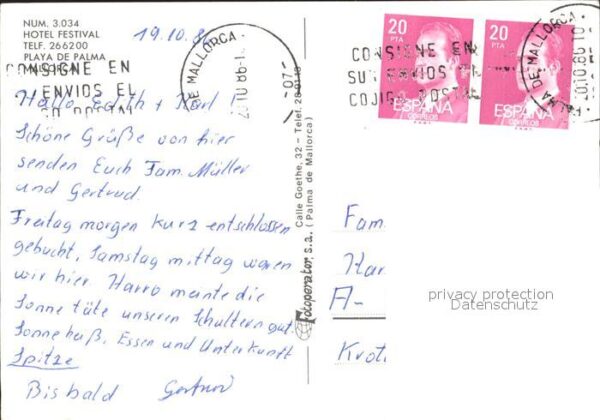 NUM. 3.034
HOTEL FESTIVAL
TELF. 266200
PLAYA DE PALMA
19.10.8
CONSIGNE EN
ENVIOS EL
Hallo Edith + Karl!
Schöne Grüße von hier
senden Euch Fam. Müller
und Gertrud.
Freitag morgen kurz entschlossen
gebucht, Samstag mittag waren
wir hier. Harro meinte die
Sonne täte unseren Schultern gut.
Sonne heiß, Essen und Unterkunft
Spitze
Bis bald Gertrud
DE MALLORCA
20.10.86
-07-
Calle Goethe, 32 - Telef.
Fotoperator, s.a. (Palma de Mallorca)
CONSIGNE EN
SUS ENVIOS EL
CODIGO POSTAL
20
PTA
ESPAÑA
CORREOS
20
PTA
ESPAÑA
CORREOS
PALMA DE MALLORCA
20.10.86
Fam
A-
privacy protection
Datenschutz